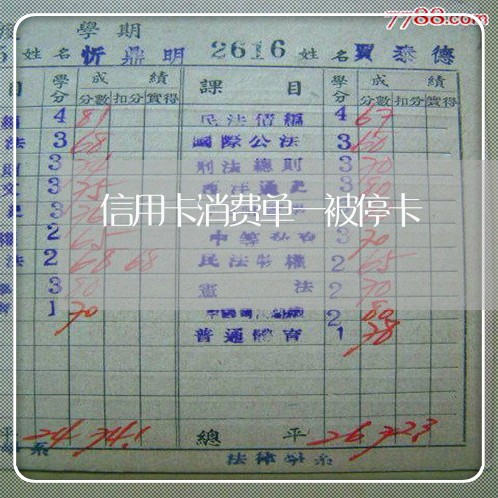 7788.com
學期
姓名 忻鼎明 2616 姓名 賈泰德
目 學分 成績 課目 學分 成績
分數 扣分 實得 分數 扣分 實得
4 81 民法債編 4 67
法 3 68 國際公法 3 60
3 刑法總則 3 70
3 75 西洋通史 3
3
信用卡消费单一被停卡
2 65 3 70
法 2 68 68 民法物權 2 65
3 80 憲法 2 70
1 70 2 80
普通體育 1 78
平 24 74.1 總平 26 72.3
系 法律學系